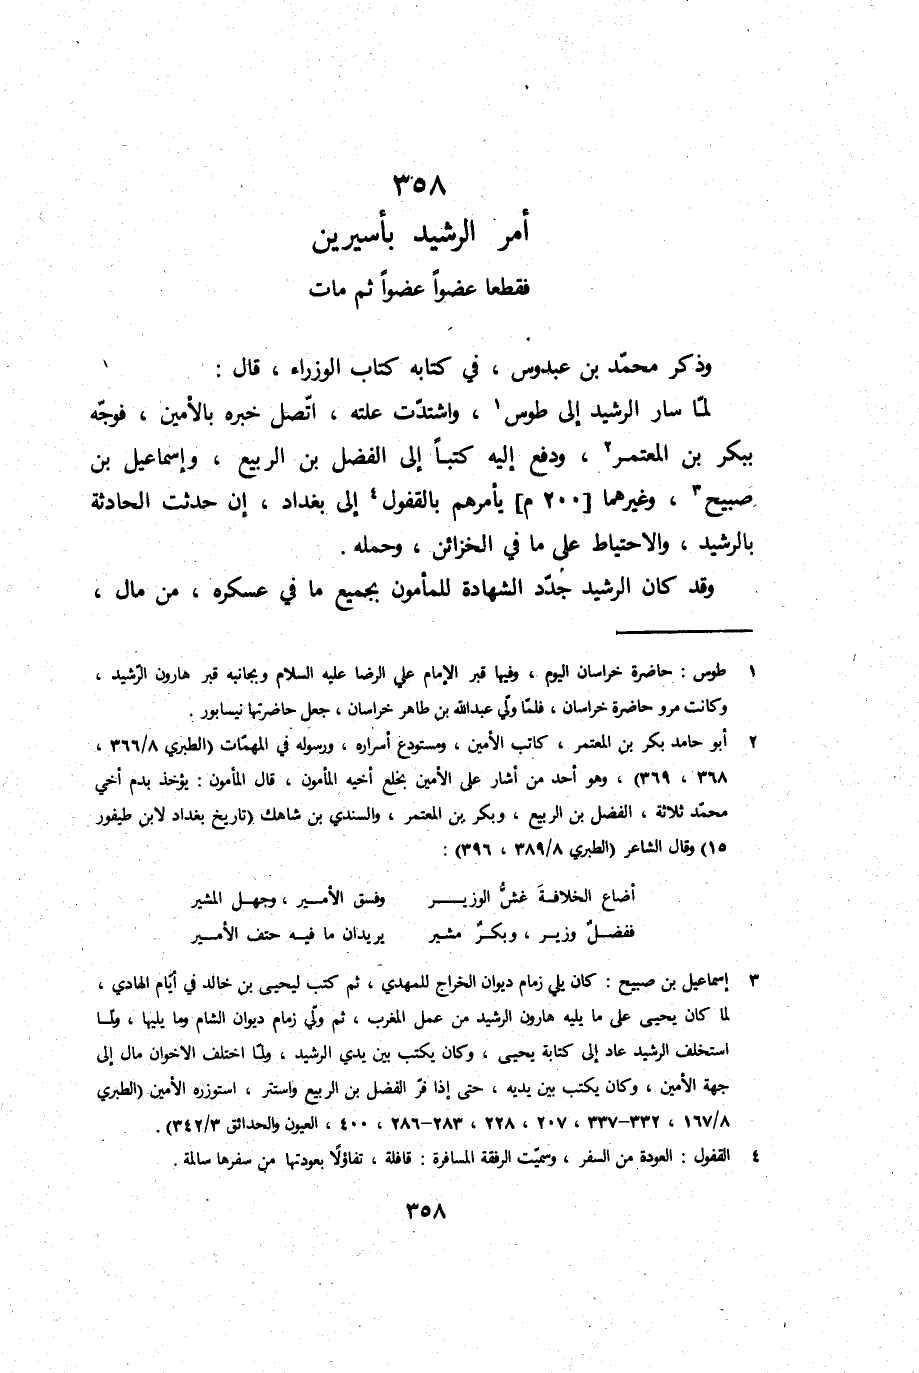 ٣٥٨
أمر الرشيد بأسيرين
فقطعا عضواً عضواً ثم مات
وذكر محمّد بن عبدوس ، في كتابه كتاب الوزراء ، قال :
لمّا سار الرشيد إلى طوس١ ، واشتدّت علته ، اتّصل خبره بالأمين ، فوجّه
ببكر بن المعتمر٢ ، ودفع إليه كتباً إلى الفضل بن الربيع ، وإسماعيل بن
صبيح٣ ، وغيرهما [٢٠٠ م] يأمرهم بالقفول٤ إلى بغداد ، إن حدثت الحادثة
بالرشيد ، والاحتياط على ما في الخزائن ، وحمله .
وقد كان الرشيد جُدّد الشهادة للمأمون بجميع ما في عسكره ، من مال ،
١ طوس : حاضرة خراسان اليوم ، وفيها قبر الإمام علي الرضا عليه السلام وبجانبه قبر هارون الرّشيد ،
وكانت مرو حاضرة خراسان ، فلمّا ولّي عبدالله بن طاهر خراسان ، جعل حاضرتها نيسابور .
٢ أبو حامد بكر بن المعتمر ، كاتب الأمين ، ومستودع أسراره ، ورسوله في المهمّات (الطبري ٣٦٦/٨ ،
٣٦٨ ، ٣٦٩) ، وهو أحد من أشار على الأمين بخلع أخيه المأمون ، قال المأمون : يؤخذ بدم أخي
محمّد ثلاثة ، الفضل بن الربيع ، وبكر بن المعتمر ، والسندي بن شاهك (تاريخ بغداد لابن طيفور
١٥) وقال الشاعر (الطبري ٣٨٩/٨ ، ٣٩٦) :
أضاع الخلافةَ غشُّ الوزيـــر وفسق الأمـــير ، وجهـل المشير
ففضـلٌ وزيـر ، وبكـرٌ مشير يريدان ما فيـه حتف الأمـير
٣ إسماعيل بن صبيح : كان يلي زمام ديوان الخراج للمهدي ، ثم كتب ليحيى بن خالد في أيّام الهادي ،
لما كان يحيى على ما يليه هارون الرشيد من عمل المغرب ، ثم ولّي زمام ديوان الشام وما يليها ، ولمّـا
استخلف الرشيد عاد إلى كتابة يحيى ، وكان يكتب بين يدي الرشيد ، ولمّا اختلف الاخوان مال إلى
جهة الأمين ، وكان يكتب بين يديه ، حتى إذا فرّ الفضل بن الربيع واستتر ، استوزره الأمين (الطبري
١٦٧/٨ ، ٣٣٢–٣٣٧ ، ٢٠٧ ، ٢٢٨ ، ٢٨٣–٢٨٦ ، ٤٠٠ ، العيون والحدائق ٣٤٢/٣) .
٤ القفول : العودة من السفر ، وسميّت الرفقة المسافرة : قافلة ، تفاؤلًا بعودتها من سفرها سالمة .
٣٥٨